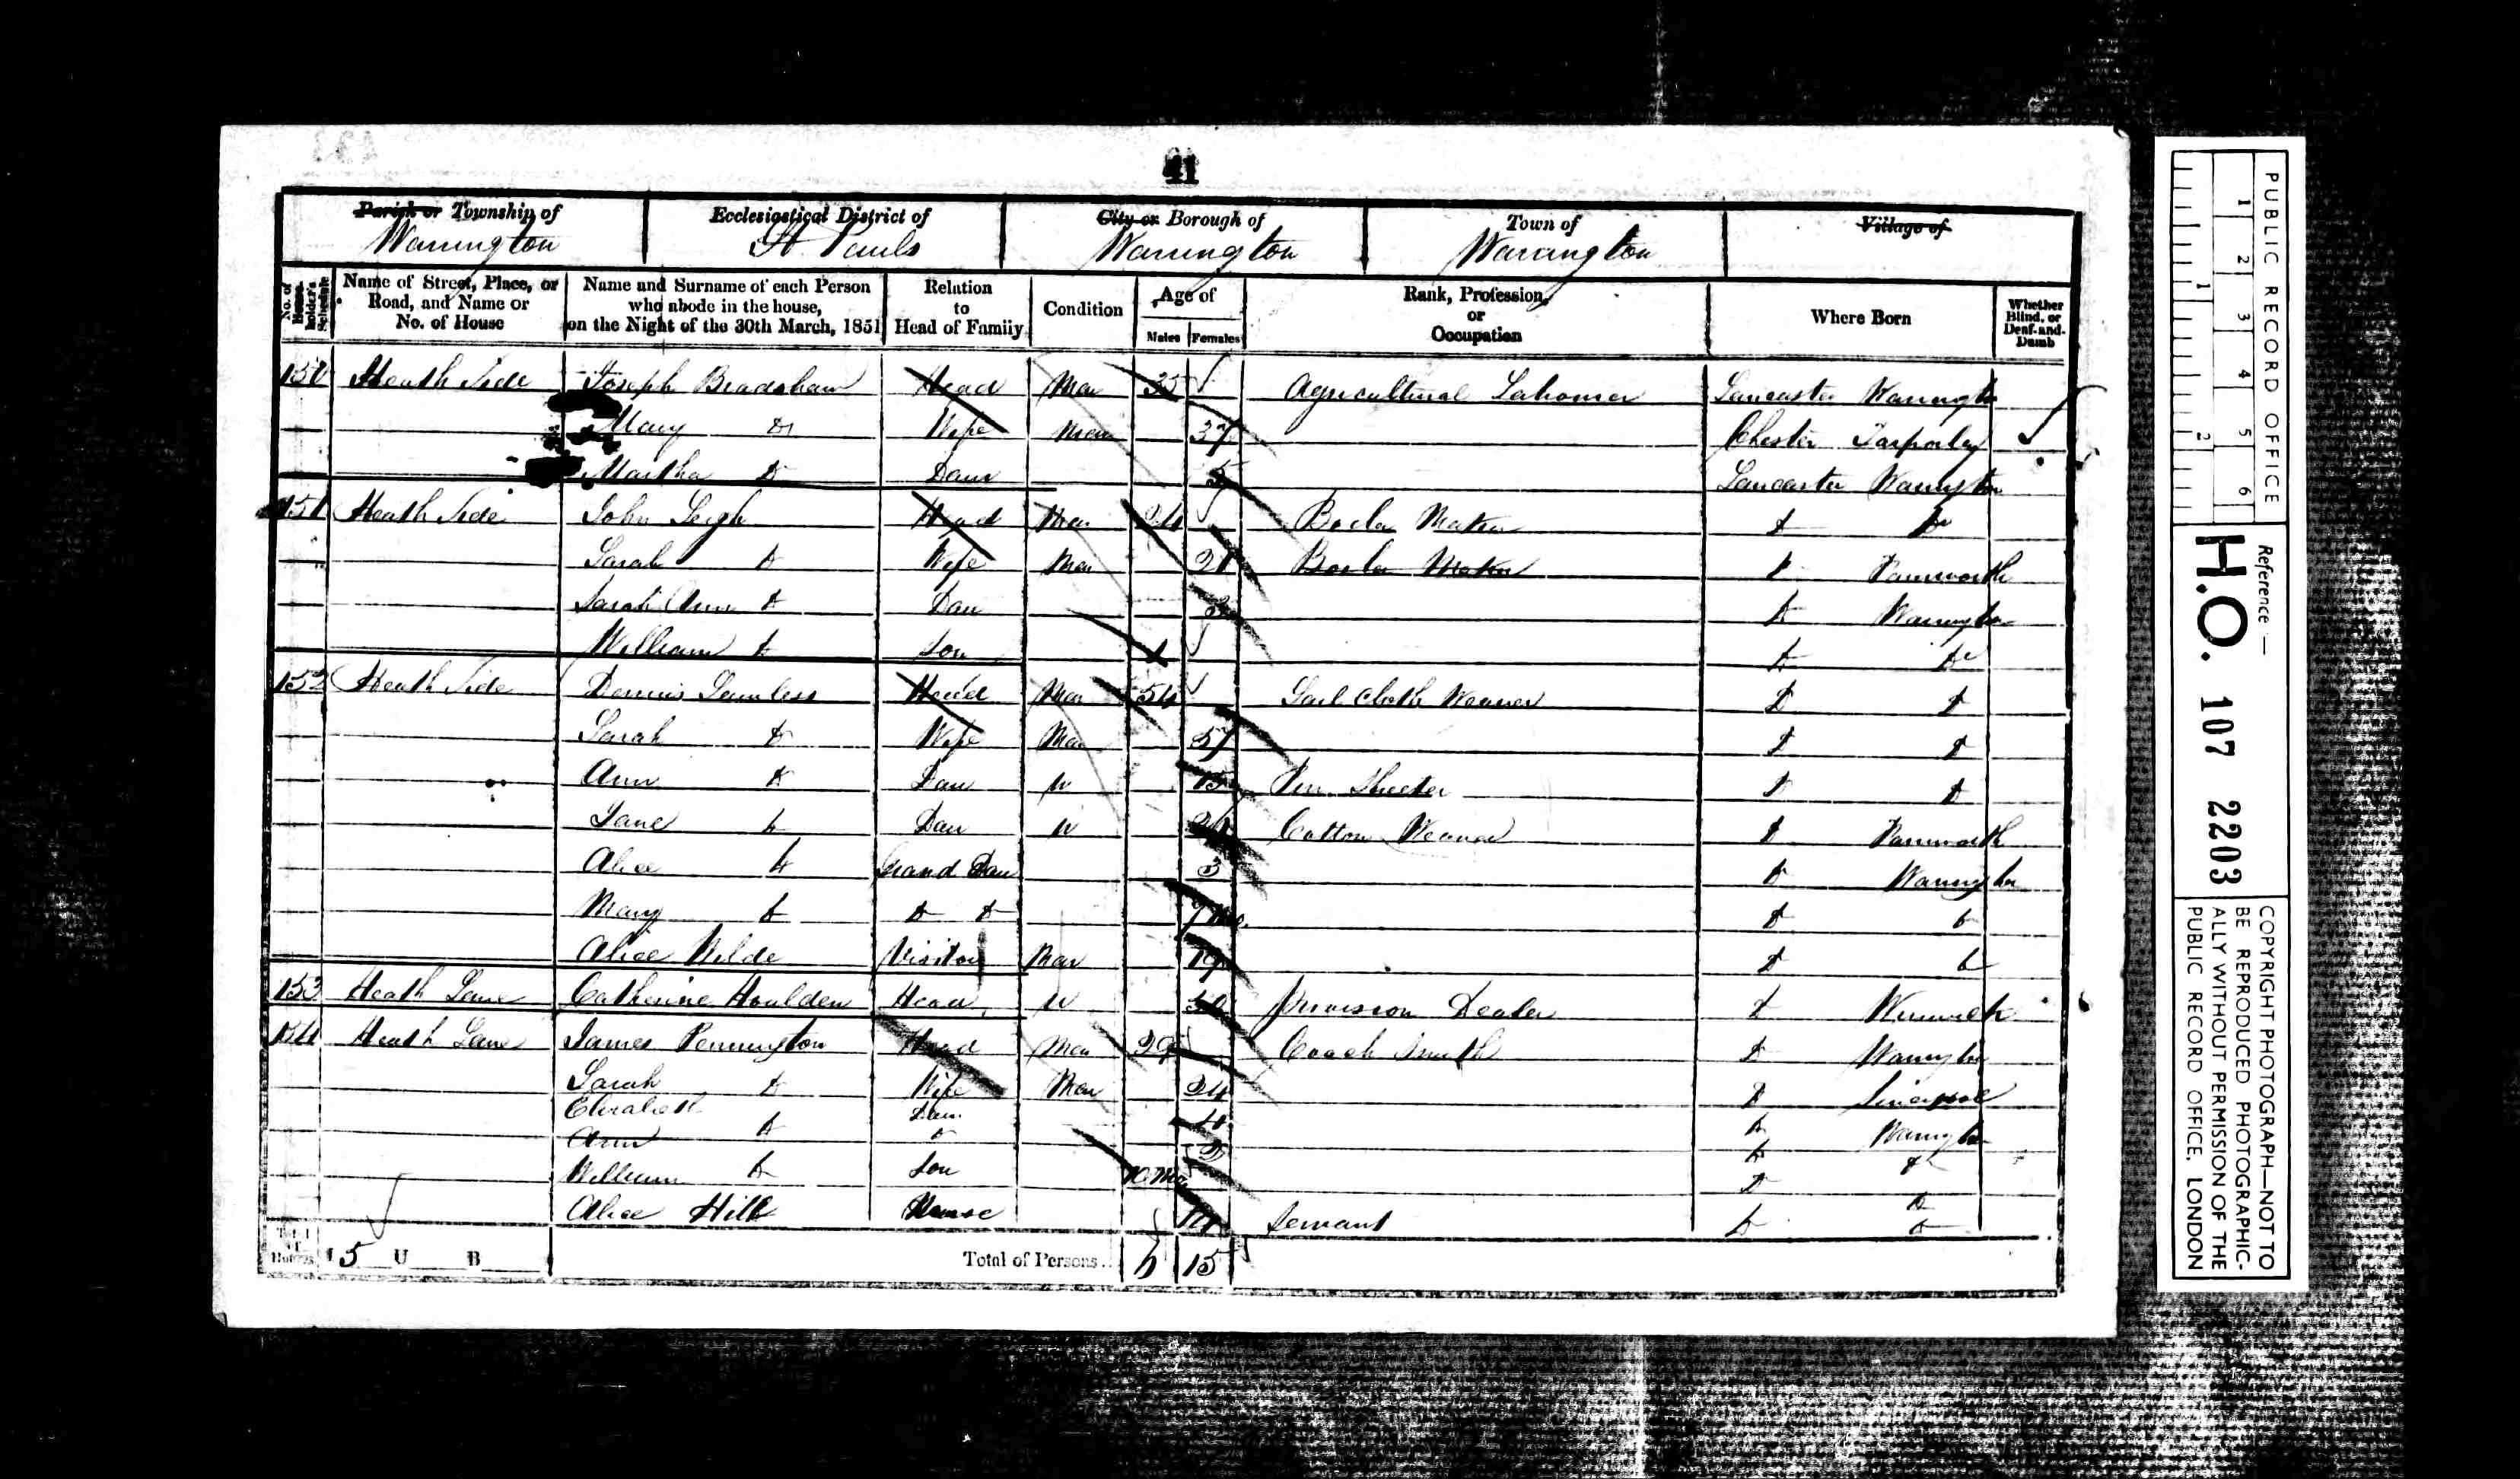 41
Parish or Township of
Warrington
Ecclesiastical District of
St Pauls
City or Borough of
Warrington
Town of
Warrington
Village of
No. of House-holder's Schedule
Name of Street, Place, or Road, and Name or No. of House
Name and Surname of each Person who abode in the house, on the Night of the 30th March, 1851
Relation to Head of Family
Condition
Age of
Males
Females
Rank, Profession, or Occupation
Where Born
Whether Blind, or Deaf-and-Dumb
150 Heath Side Joseph Bradshaw Head Mar 35 Agricultural Labourer Lancaster Warrington
Mary Do Wife Mar 37 Chester Tarporley
Martha Do Daur 5 Lancaster Warrington
151 Heath Side John Leigh Head Mar 24 Boiler Maker Do Do
Sarah Do Wife Mar 21 Boiler Maker Do Farnworth
Sarah Ann Do Dau Do Warrington
William Do Son 1 Do Do
152 Heath Side Dennis Head Mar 54 Sail Cloth Weaver Do Do
Sarah Do Wife Mar 57 Do Do
Ann Do Dau U 15 Pin Sheeter Do Do
Jane Do Dau U Cotton Weaver Do Farnworth
Alice Do Grand Dau 3 Do Warrington
Mary Do Do Do 7 Mo. Do Do
Alice Wilde Visitor Mar 19 Do Do
153 Heath Lane Catherine Houlden Head U Provision Dealer Do Winwick
154 Heath Lane James Pennington Head Mar 29 Coach Smith Do Warrington
Sarah Do Wife Mar 24 Do Liverpool
Elizabeth Do Daur 4 Do Warrington
Ann Do Do Do
William Do Son 10 Mo Do Do
Alice Hill Nurse Servant Do Do
Total of Houses
I 5 U B
Total of Persons
6 15
PUBLIC RECORD OFFICE
1 2 3 4 5 6
1 2
Reference:—
H.O. 107 2203
COPYRIGHT PHOTOGRAPH—NOT TO
BE REPRODUCED PHOTOGRAPHIC-
ALLY WITHOUT PERMISSION OF THE
PUBLIC RECORD OFFICE, LONDON